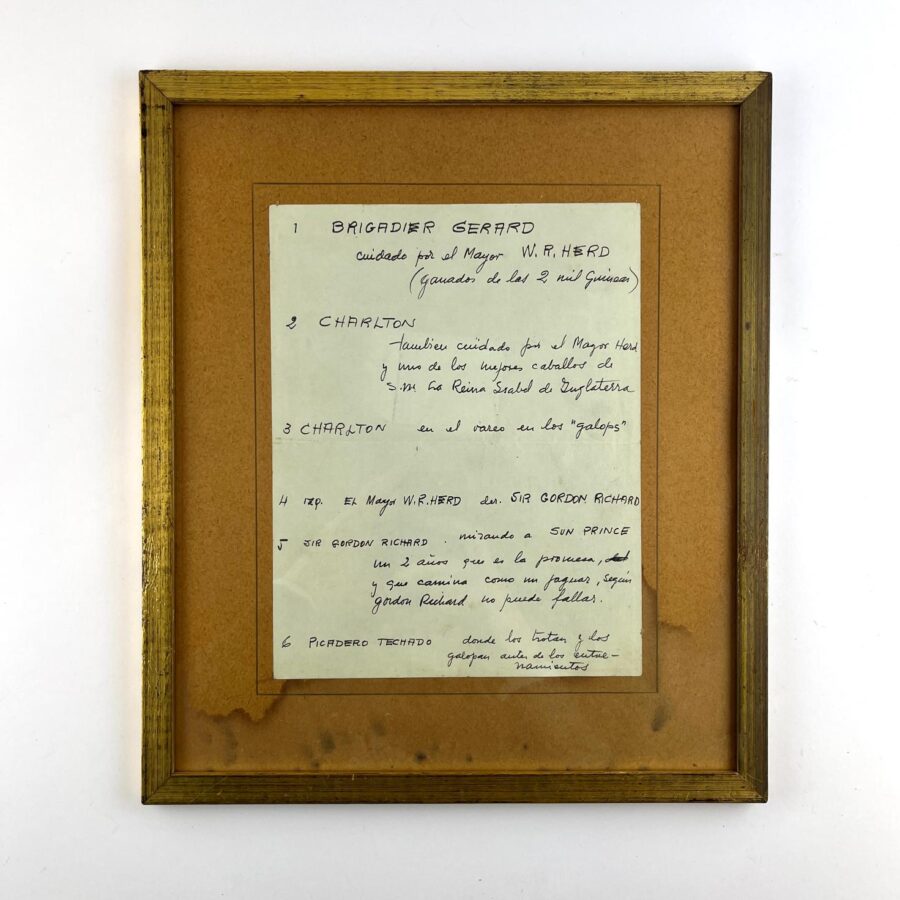 1 BRIGADIER GERARD
cuidado por el Mayor W.R. HERD
(ganados de las 2 mil Guineas)
2 CHARLTON
tambien cuidado por el Mayor Herd
y uno de los mejores caballos de
S.M. La Reina Isabel de Inglaterra
3 CHARLTON en el vareo en los "galops"
4 IZQ. EL Mayor W.R. HERD der. SIR GORDON RICHARD
5 SIR GORDON RICHARD. mirando a SUN PRINCE
un 2 años que es la promesa,
y que camina como un jaguar, según
gordon Richard no puede fallar.
6 PICADERO TECHADO donde los trotan y los
galopan antes de los entre-
namientos